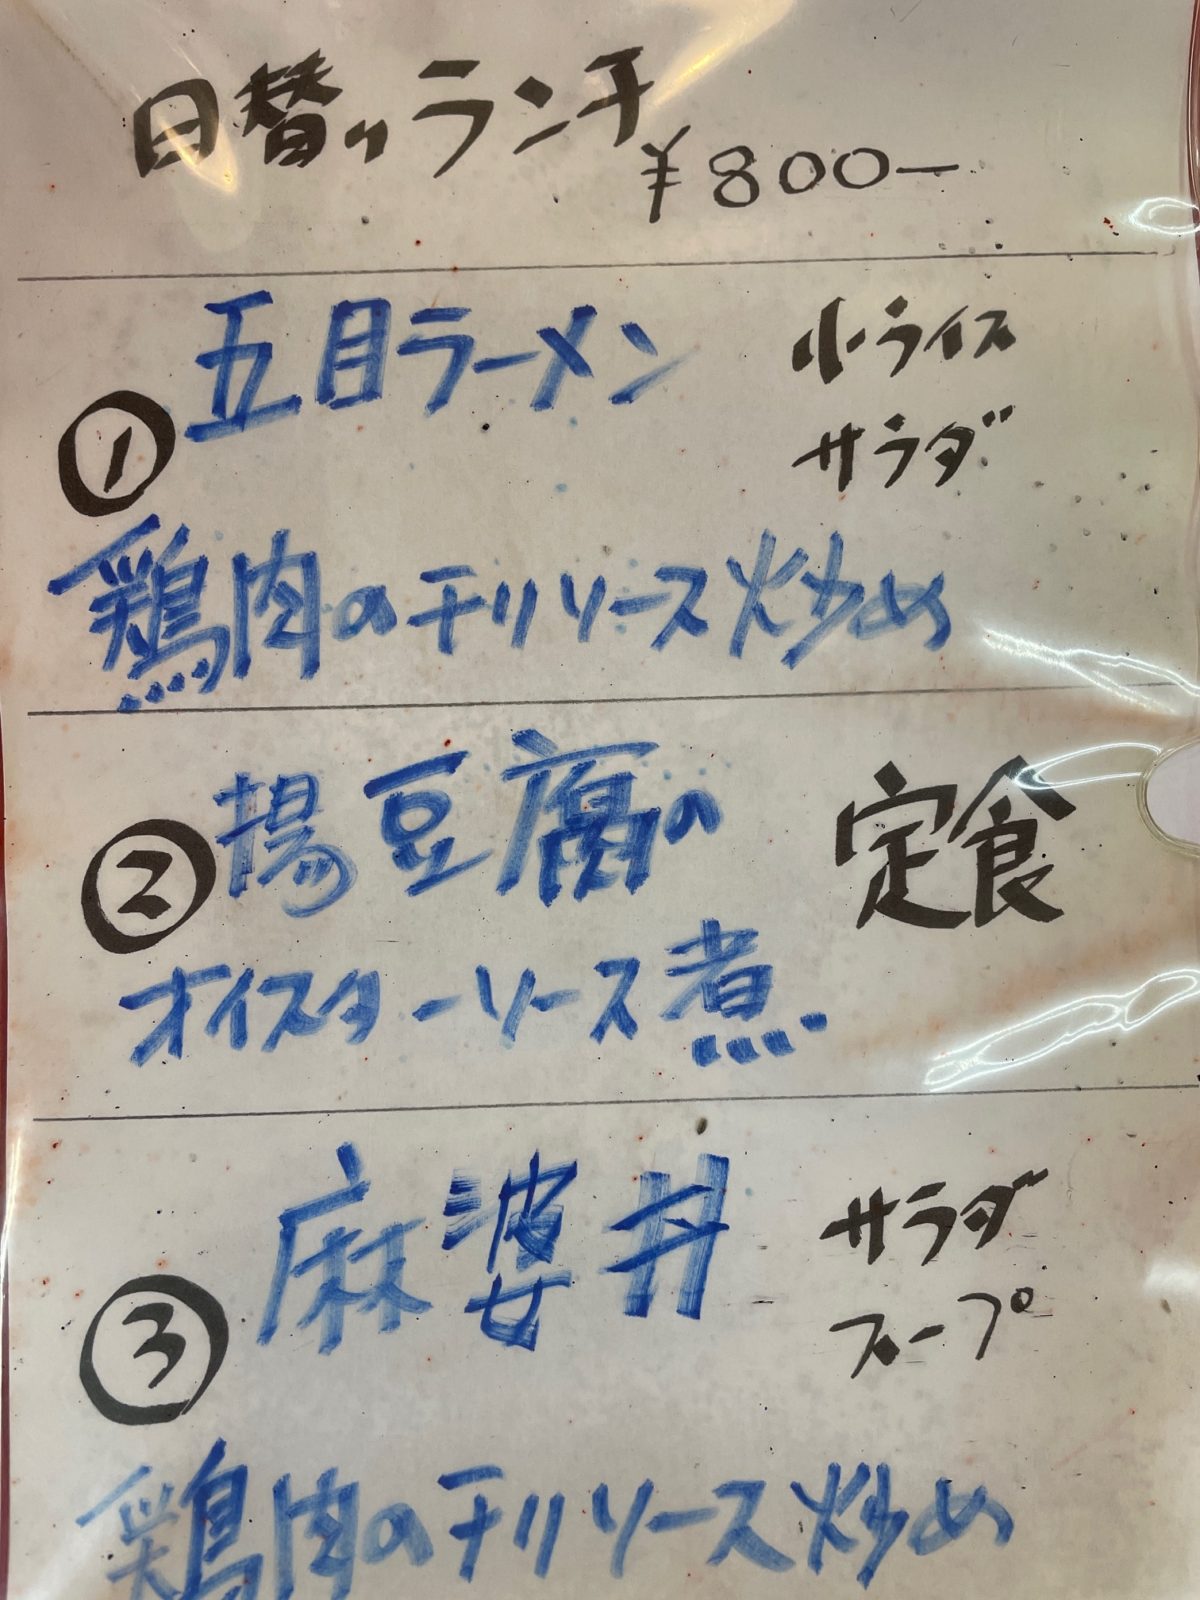 日替りランチ
¥800ー
① 五目ラーメン 小ライス
サラダ
鶏肉のチリソース炒め
② 揚豆腐の 定食
オイスターソース煮
③ 麻婆丼 サラダ
スープ
鶏肉のチリソース炒め